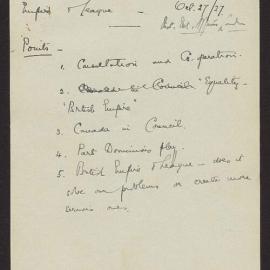 Empire & League —
Oct. 27/27
Points —
1. Consultation and Co-operation.
2. "Equality -
"British Empire"
3. Canada in Council.
4. Part Dominions play.
5. British Empire & League — does it
solve our problems or create more
serious ones.